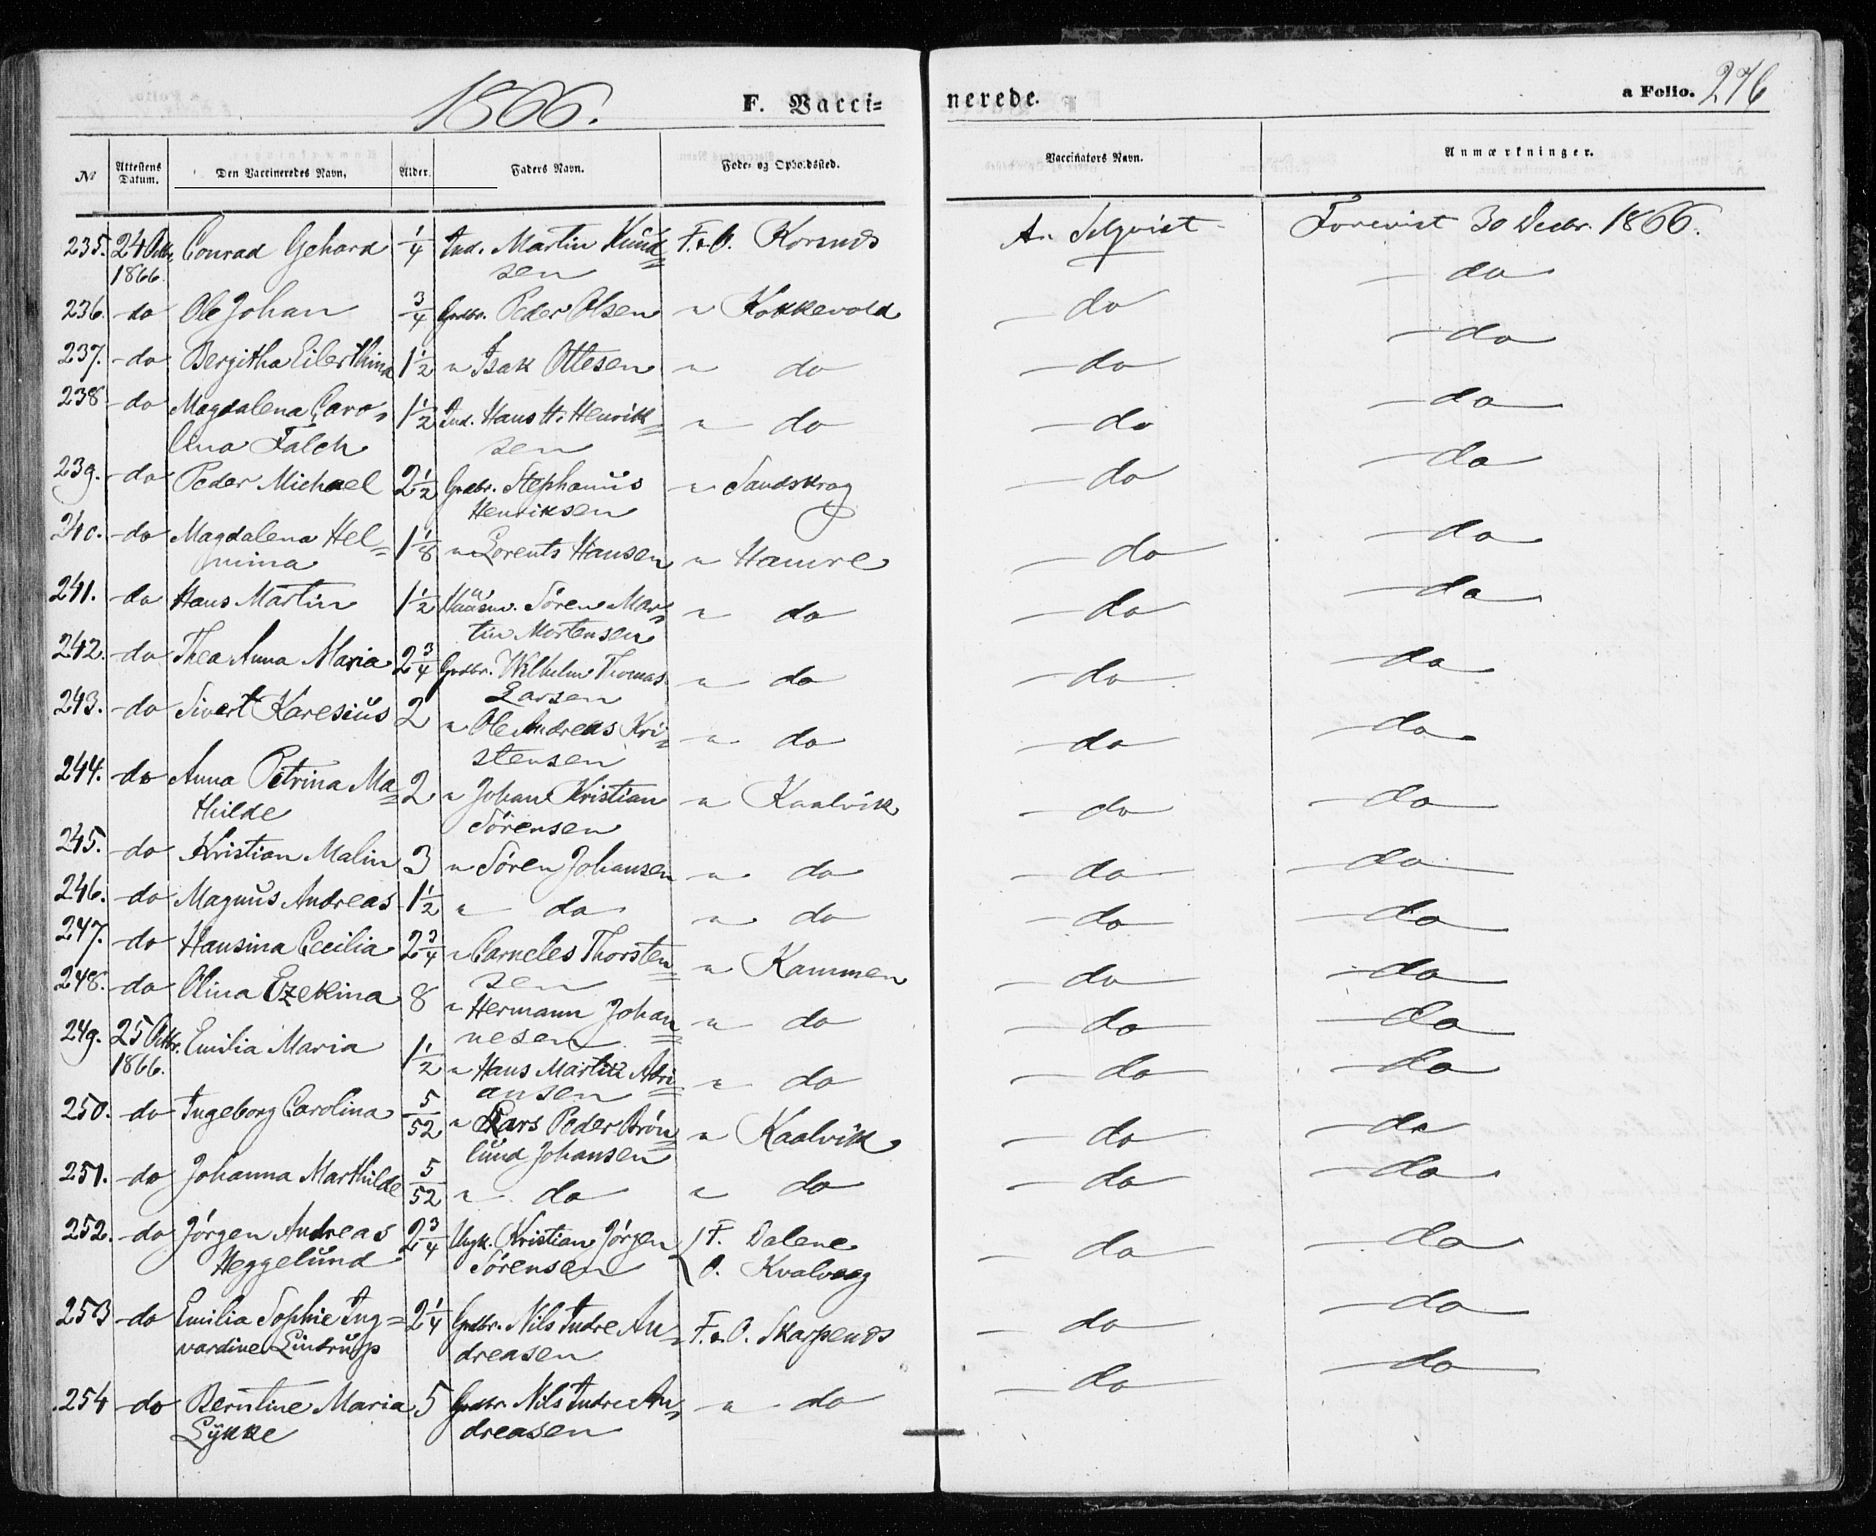 1866.
F. Vacci=
nerede.
a Folio. 276
No
Attestens Datum.
Den Vaccineredes Navn.
Alder.
Faders Navn.
Føde- og Opholdssted.
Vaccinators Navn.
Anmærkninger.
235. 24 Octbr. Conrad Gehard 1/4 Ind. Martin Knud= F. & O. Korsnes A. Selqvist Forevist 30 Decbr. 1866.
1866. sen
236. do Ole Johan 3/4 Grdbr. Peder Olsen " Kokkevold do do
237. do Bergitha Eilerthina 1 1/2 " Isak Ottesen " do do do
238 do Magdalena Caro= 1 1/2 Ind. Hans H. Henrik= " do do do
lina Falch sen
239. do Peder Michael 2 1/2 Grdbr. Stephanus " Sandskrog do do
Henriksen
240. do Magdalena Hel= 1 1/8 " Lorents Hansen " Hamre do do
mina
241. do Hans Martin 1 1/2 Huusm. Sören Mar= " do do do
tin Mortensen
242. do Thea Anna Maria 2 3/4 Grdbr. Wilhelm Thomas " do do do
Larsen
243. do Sivert Karesius 2 " Ole Andreas Kri= " do do do
stensen
244. do Anna Petrina Ma= 2 " Johan Kristian " Kaalvik do do
thilde Sörensen
245. do Kristian Malin 3 " Sören Johansen " do do do
246. do Magnus Andreas 1 1/2 " do " do do do
247. do Hansina Cecilia 2 3/4 " Carneles Thorsten= " Kammen do do
sen
248. do Olina Ezekina 8 " Hermann Johan= " do do do
nesen
249. 25 Octbr. Emilia Maria 1 1/2 " Hans Martin Adri= " do do do
1866. ansen
250. do Ingeborg Carolina 5/52 " Lars Peder Brön= " Kaalvik do do
lund Johansen
251. do Johanna Marthilde 5/52 " do " do do do
252. do Jörgen Andreas 2 3/4 Ungk. Kristian Jörgen F. Dalene do do
Heggelund Sörensen O. Kvalvaag
253 do Emilia Sophie Ing= 2 1/4 Grdbr. Nils Indre An= F. & O. Skarpenes do do
vardine Lintrup dreasen
254 do Berntine Maria 5 Grdbr. Nils Indre An= " do do
Lykke dreasen